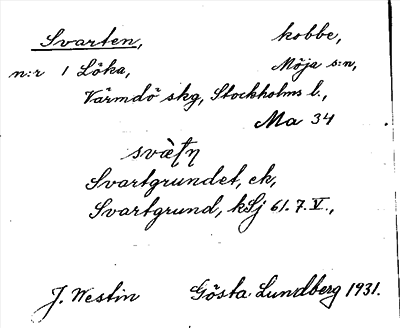 Svarten, kobbe,
n:r 1 Löka, Möja s:n,
Värmdö skg, Stockholms l.,
Ma 34
Svartgrundet, ek,
Svartgrund, kSj 61. 7. V.,
J. Westin Gösta Lundberg 1931.